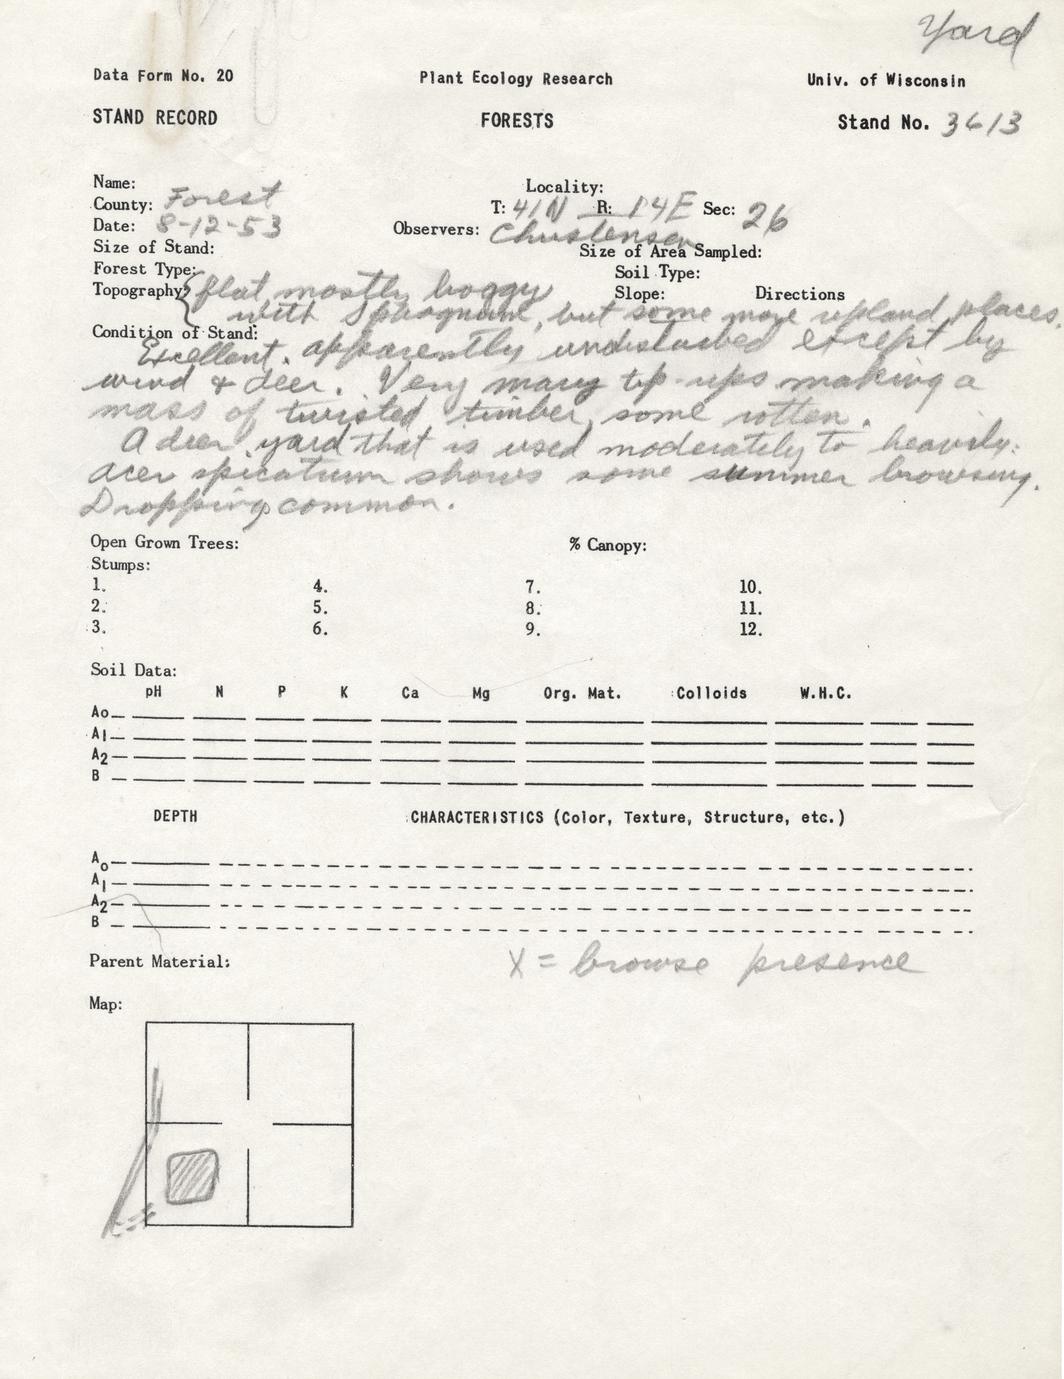 Yard
Data Form No. 20 Plant Ecology Research Univ. of Wisconsin
STAND RECORD FORESTS Stand No. 3613
Name: Locality:
County: Forest T: 41N R: 14E Sec: 26
Date: 8-12-53 Observers: Christensen
Size of Stand: Size of Area Sampled:
Forest Type: Soil Type:
Topography: flat, mostly boggy Slope: Directions
with Sphagnum, but some more upland places.
Condition of Stand:
Excellent, apparently undisturbed except by
wind & deer. Very many tip-ups making a
mass of twisted timber, some rotten.
A deer yard that is used moderately to heavily:
acer spicatum shows some summer browsing.
Dropping common.
Open Grown Trees: % Canopy:
Stumps:
1. 4. 7. 10.
2. 5. 8. 11.
3. 6. 9. 12.
Soil Data:
pH N P K Ca Mg Org. Mat. Colloids W.H.C.
Ao
A1
A2
B
DEPTH CHARACTERISTICS (Color, Texture, Structure, etc.)
Ao
A1
A2
B
Parent Material: X = browse presence
Map: